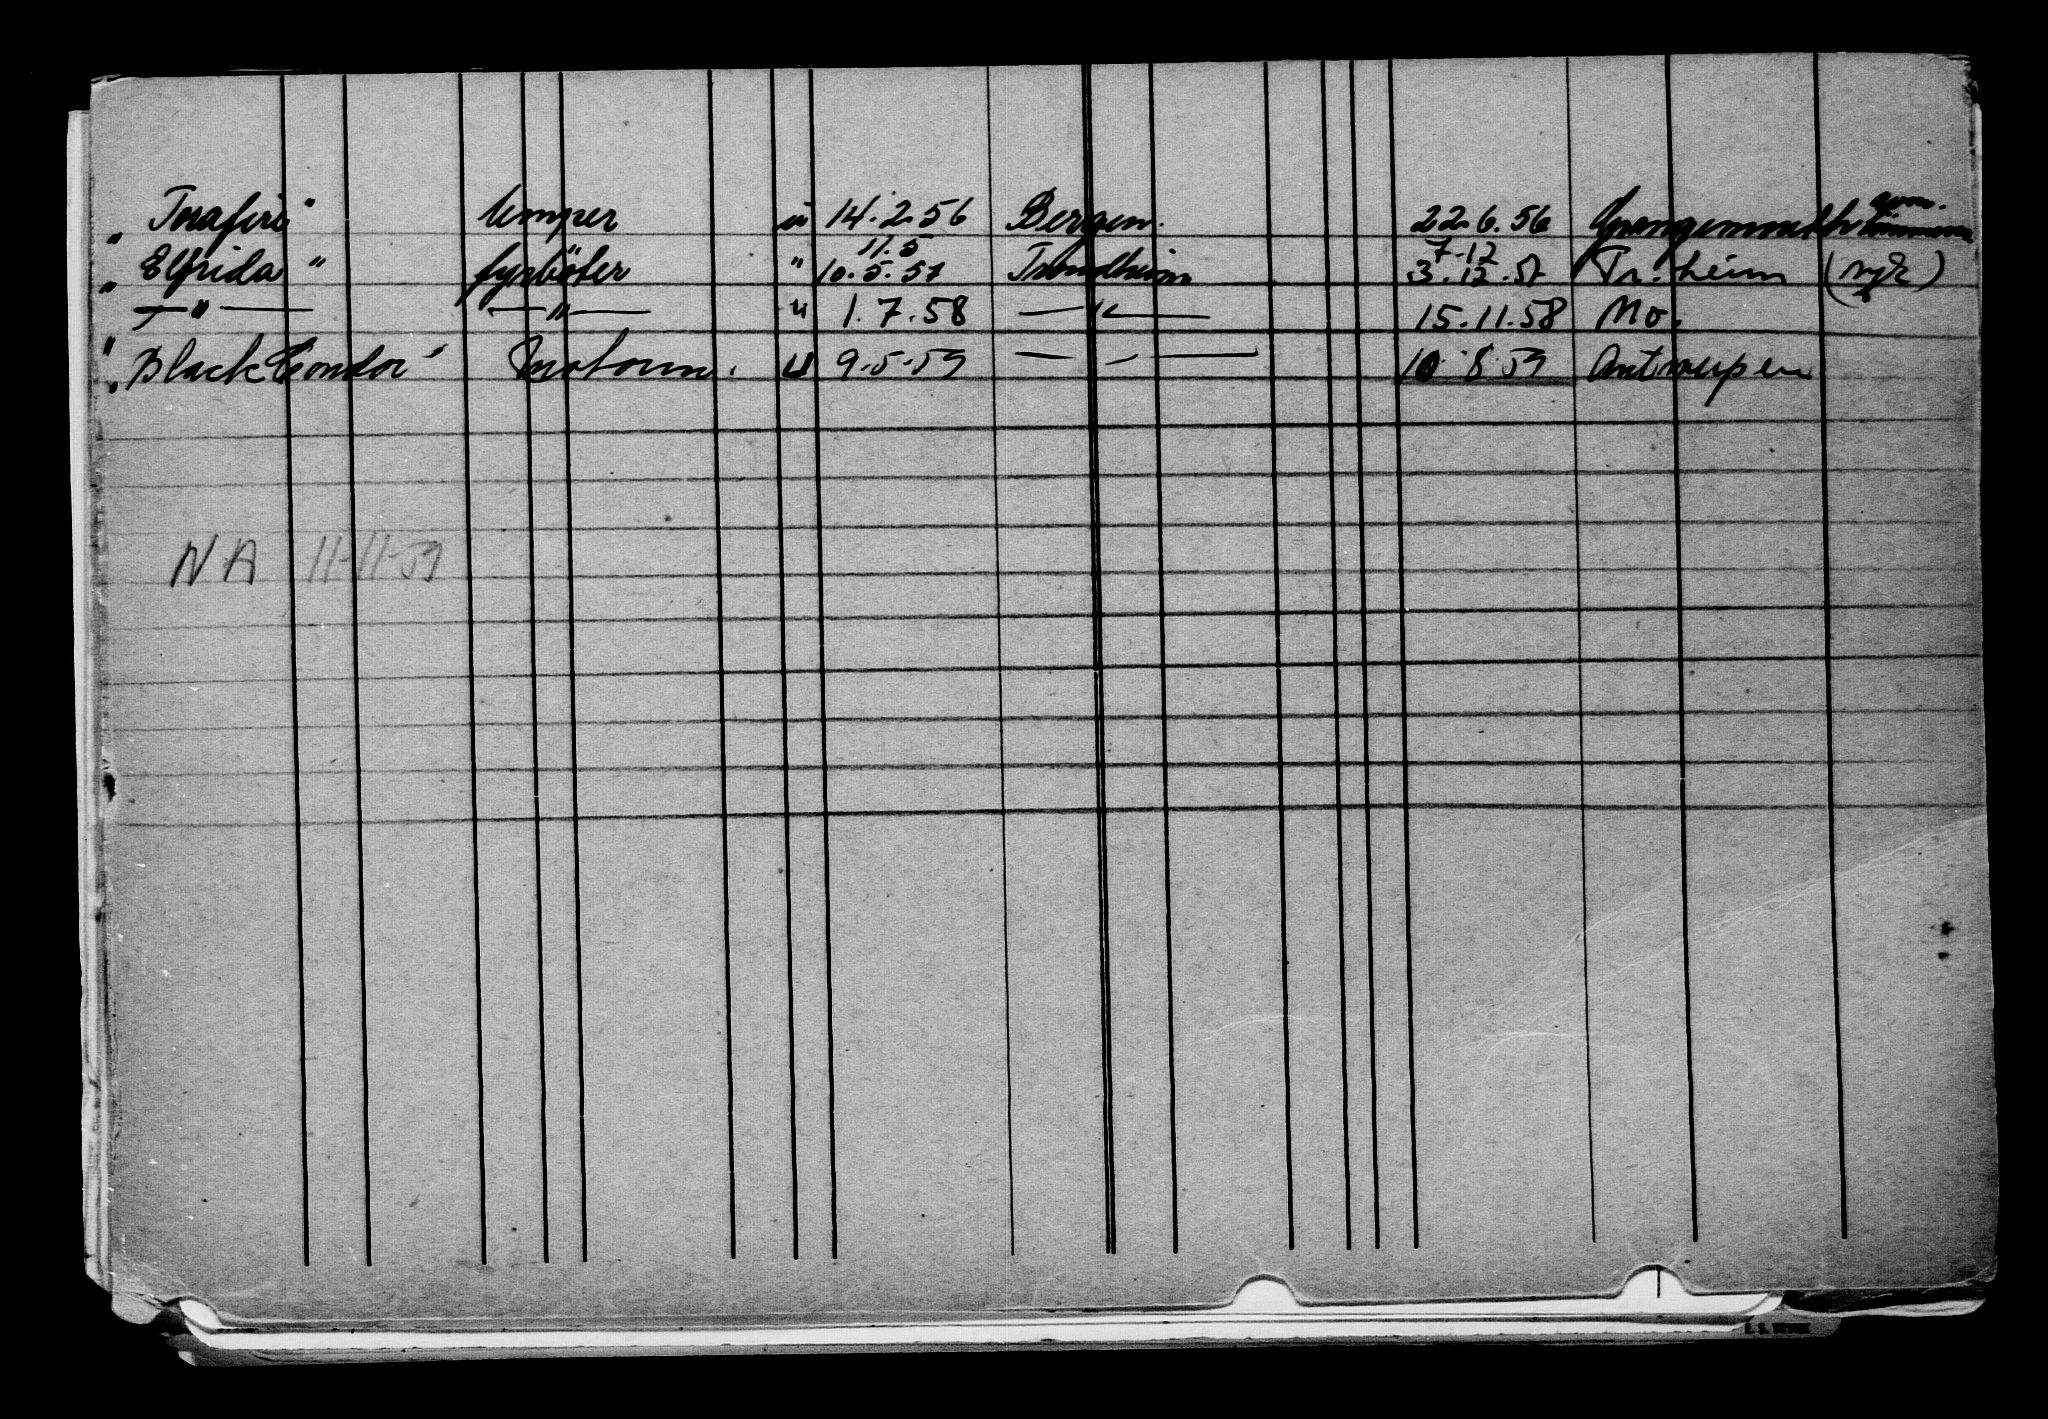 " Inafire" lemper u 14.2.56 Bergen. 22.6.56 Grangemouth
" Elfrida " fyrböter " 11.5 10.5.57 Trondheim 7.12 3.12.57 Tr.heim (syk)
" —"— —"— " 1.7.58 —"— 15.11.58 Mo.
" Black Condor" Motorm. u 9.5.59 — " — 10.8.59 Antwerpen
NA 11-11-59